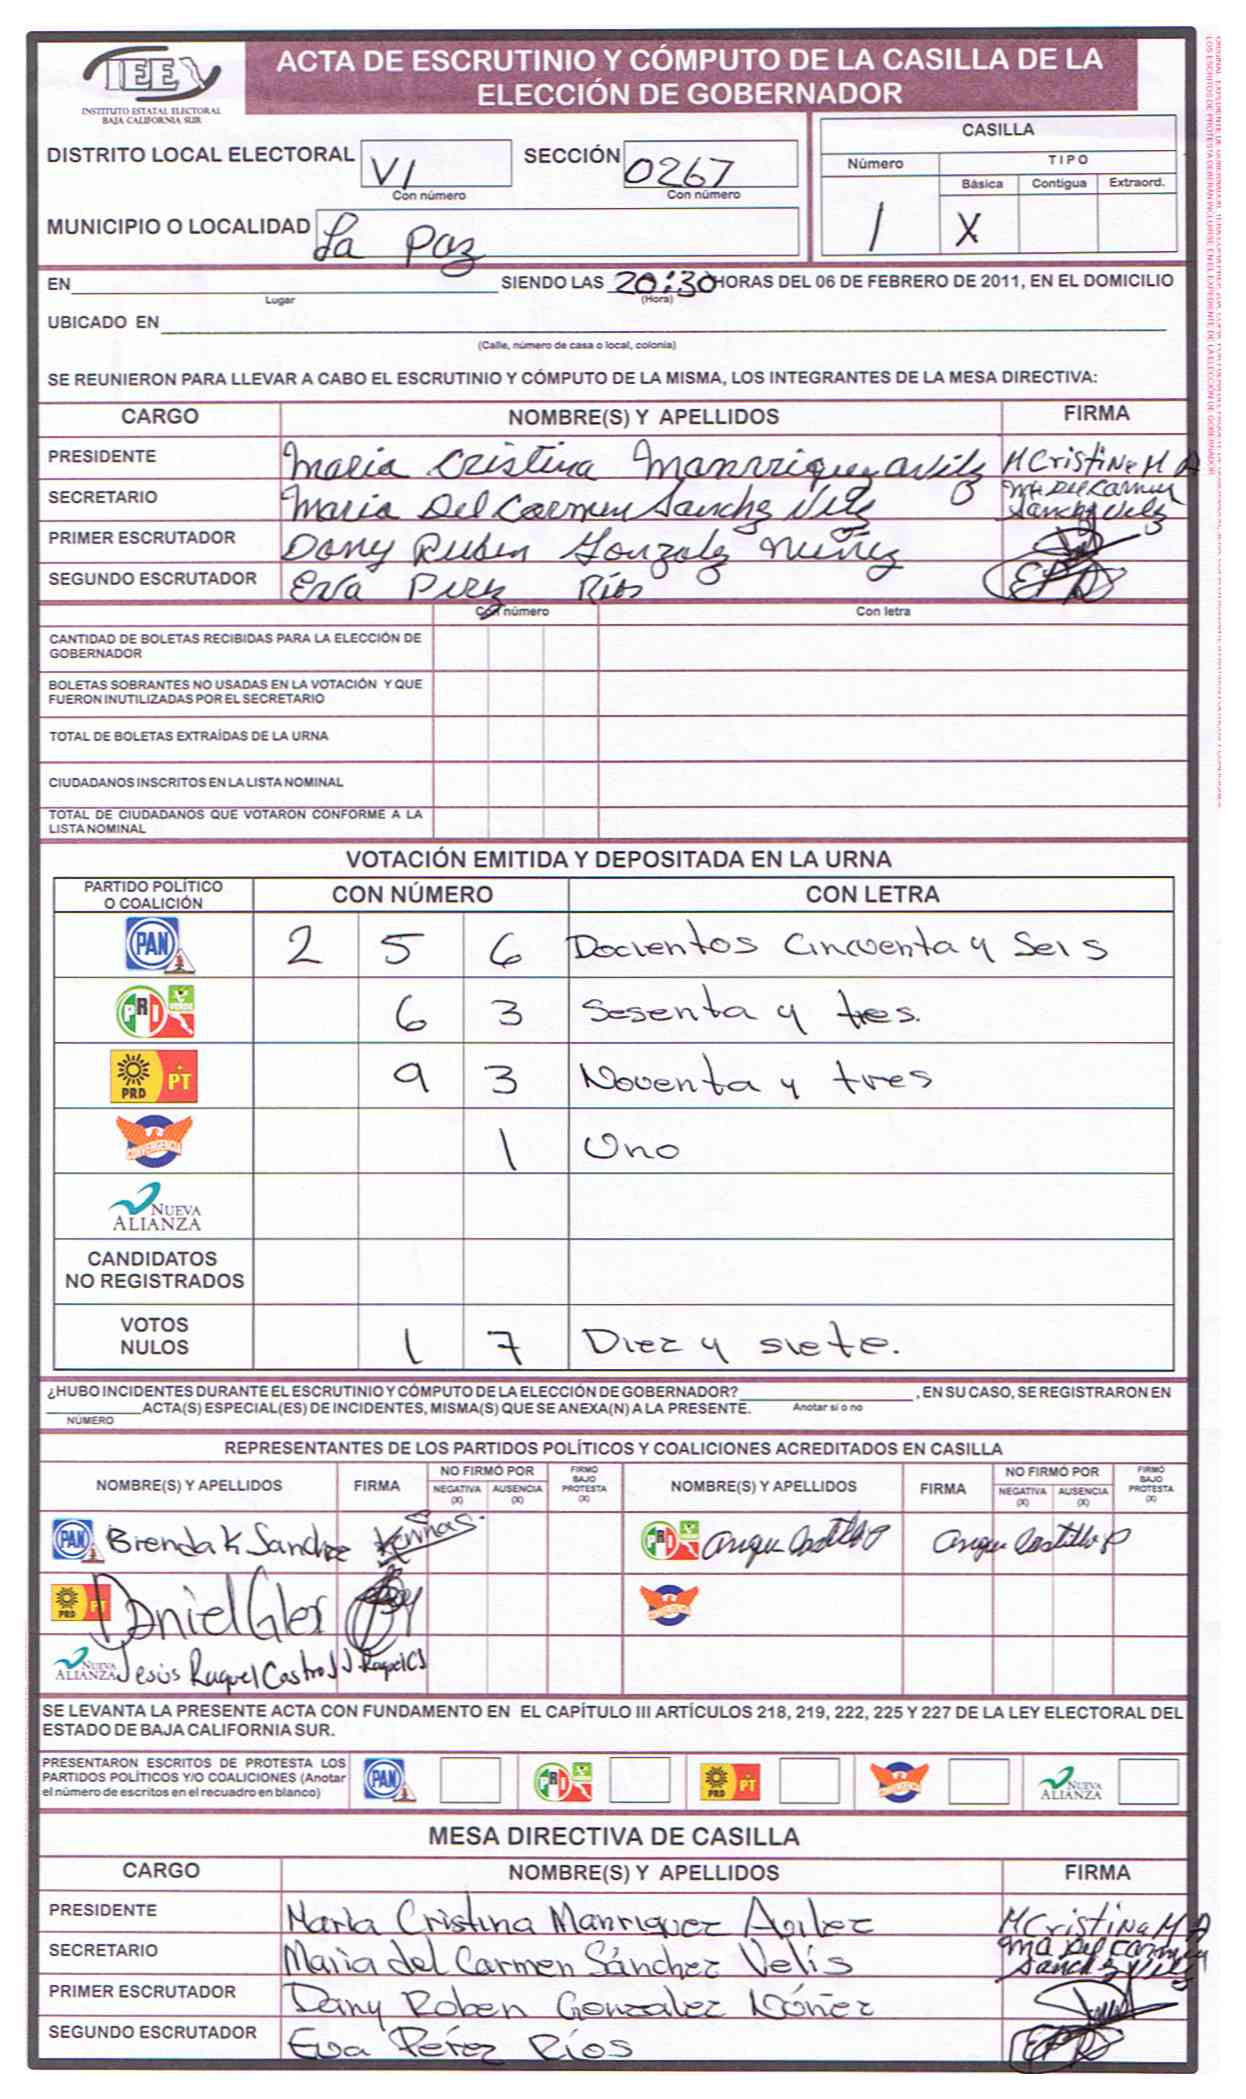 IEE
INSTITUTO ESTATAL ELECTORAL
BAJA CALIFORNIA SUR
ACTA DE ESCRUTINIO Y CÓMPUTO DE LA CASILLA DE LA
ELECCIÓN DE GOBERNADOR
DISTRITO LOCAL ELECTORAL VI SECCIÓN 0267
Con número Con número
MUNICIPIO O LOCALIDAD La Paz
CASILLA
Número TIPO
Básica Contigua Extraord.
1 X
EN SIENDO LAS 20:30 HORAS DEL 06 DE FEBRERO DE 2011, EN EL DOMICILIO
Lugar (Hora)
UBICADO EN
(Calle, número de casa o local, colonia)
SE REUNIERON PARA LLEVAR A CABO EL ESCRUTINIO Y CÓMPUTO DE LA MISMA, LOS INTEGRANTES DE LA MESA DIRECTIVA:
CARGO NOMBRE(S) Y APELLIDOS FIRMA
PRESIDENTE Maria Cristina Manrriquez Avilez M Cristina M A
SECRETARIO Maria Del Carmen Sanchz Velz Ma Del Carmen Sanchz Velz
PRIMER ESCRUTADOR Dany Ruben Gonzalez Nuñez
SEGUNDO ESCRUTADOR Eva Perez Ríos EPR
Con número Con letra
CANTIDAD DE BOLETAS RECIBIDAS PARA LA ELECCIÓN DE
GOBERNADOR
BOLETAS SOBRANTES NO USADAS EN LA VOTACIÓN Y QUE
FUERON INUTILIZADAS POR EL SECRETARIO
TOTAL DE BOLETAS EXTRAÍDAS DE LA URNA
CIUDADANOS INSCRITOS EN LA LISTA NOMINAL
TOTAL DE CIUDADANOS QUE VOTARON CONFORME A LA
LISTA NOMINAL
VOTACIÓN EMITIDA Y DEPOSITADA EN LA URNA
PARTIDO POLÍTICO
O COALICIÓN CON NÚMERO CON LETRA
PAN 2 5 6 Docientos Cincuenta y Seis
PRI VERDE 6 3 Sesenta y tres.
PRD PT 9 3 Noventa y tres
CONVERGENCIA 1 Uno
NUEVA
ALIANZA
CANDIDATOS
NO REGISTRADOS
VOTOS
NULOS 1 7 Diez y siete.
¿HUBO INCIDENTES DURANTE EL ESCRUTINIO Y CÓMPUTO DE LA ELECCIÓN DE GOBERNADOR? , EN SU CASO, SE REGISTRARON EN
ACTA(S) ESPECIAL(ES) DE INCIDENTES, MISMA(S) QUE SE ANEXA(N) A LA PRESENTE. Anotar si o no
NÚMERO
REPRESENTANTES DE LOS PARTIDOS POLÍTICOS Y COALICIONES ACREDITADOS EN CASILLA
NOMBRE(S) Y APELLIDOS FIRMA NO FIRMÓ POR NEGATIVA (X) AUSENCIA (X) FIRMÓ BAJO PROTESTA (X) NOMBRE(S) Y APELLIDOS FIRMA NO FIRMÓ POR NEGATIVA (X) AUSENCIA (X) FIRMÓ BAJO PROTESTA (X)
PAN Brenda K Sanchez PRI VERDE Castillo P Castillo P
PRD PT Daniel Glez CONVERGENCIA
NUEVA ALIANZA Jesús Raquel Castro J J. Raquel CJ
SE LEVANTA LA PRESENTE ACTA CON FUNDAMENTO EN EL CAPÍTULO III ARTÍCULOS 218, 219, 222, 225 Y 227 DE LA LEY ELECTORAL DEL
ESTADO DE BAJA CALIFORNIA SUR.
PRESENTARON ESCRITOS DE PROTESTA LOS
PARTIDOS POLÍTICOS Y/O COALICIONES (Anotar
el número de escritos en el recuadro en blanco)
PAN PRI VERDE PRD PT CONVERGENCIA NUEVA ALIANZA
MESA DIRECTIVA DE CASILLA
CARGO NOMBRE(S) Y APELLIDOS FIRMA
PRESIDENTE Maria Cristina Manriquez Avilez M Cristina M A
SECRETARIO Maria del Carmen Sánchez Velis Ma Del Carmen Sanchz Velz
PRIMER ESCRUTADOR Dany Roben Gonzalez Núñez
SEGUNDO ESCRUTADOR Eva Pérez Ríos EPR